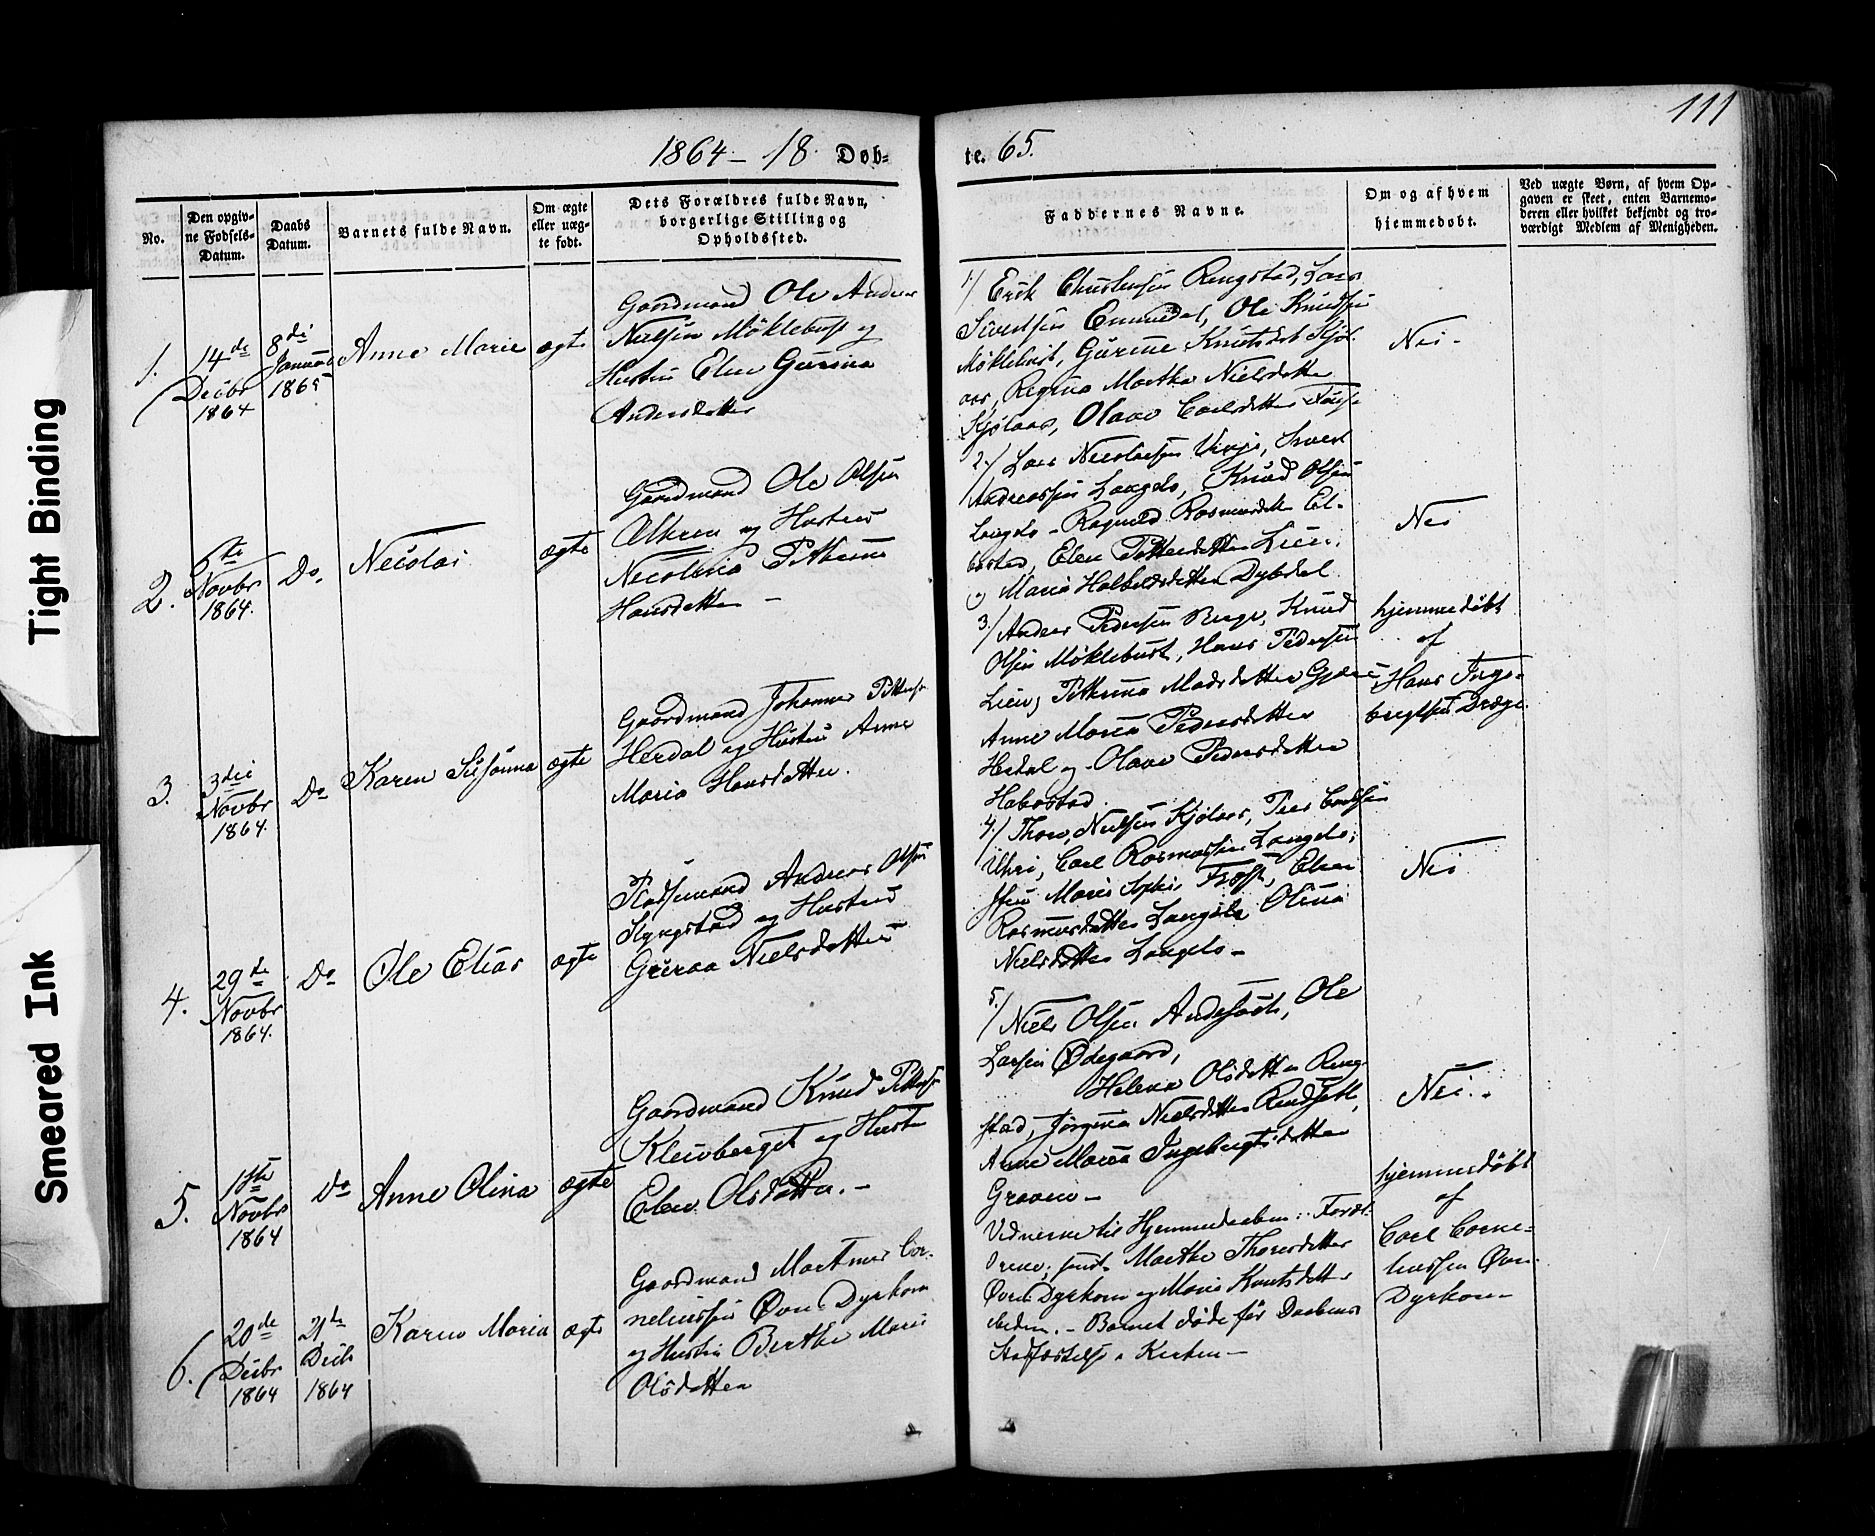 111
1864 – 18 Døb-
te. 65.
No.
Den opgiv-
ne Fødsels-
Datum.
Daabs
Datum.
Barnets fulde Navn.
Om ægte
eller uæg-
te født.
Dets Forældres fulde Navn,
borgerlige Stilling og
Opholdssted.
Faddernes Navne.
Om og af hvem
hjemmedøbt.
Ved uægte Børn, af hvem Op-
gaven er skeet, enten Barnemo-
deren eller hvilket bekjendt og tro-
værdigt Medlem af Menigheden.
1.
14de
Decbr
1864
8de
Januar
1865
Anne Marie
ægte
Gaardmand Ole Andreas
Nielsen Møklebust og
Hustru Elen Gurina
Andersdatter
1/ Erik Christensen Ringstad, Lars
Sivertsen Emmedal, Ole Knudsen
Møklebust, Gurine Knutsdat Kjøl-
aas, Regina Martha Nielsdatter
Kjølaas, Olave Carlsdatter
Nei.
2.
5te
Novbr
1864.
Do.
Nicolai
ægte
Gaardmand Ole Olsen
og Hustrue
Nicolina Petrine
Hansdatter –
2/ Lars Nicolaisen Sivert
Andreassen Langelo, Knud Olsen
Langelo – Ragnild Rasmusdatter
Elen Pettersdatter Lien,
Maria Dybdal
Nei
3.
3die
Novbr
1864.
Do
Karen Susanna
ægte
Gaardmand Johannes Petters.
Herdal og Hustru Anne
Maria Hansdatter.
3/ Anders Pedersen Knud
Olsen Møklebust, Hans Pedersen
Lien, Petrina Madsdatter
Anne Maria Pedersdatter
Herdal og Olave Pedersdatter
Habostad
hjemmedøbt
af
Hans Inge-
brigtsen
4.
29de
Novbr
1864.
Do
Ole Elias
ægte
Pladsmand Andreas Olsen
Ryngstad og Hustrue
Gurina Nielsdatter
4/ Thore Nielsen Kjølaas, Peer
Carl Rasmussen Langelo,
Elen
Rasmusdatter Langelo Olina
Nielsdatter Langelo –
Nei
5.
1ste
Novbr
1864
Do
Anne Olina
ægte
Gaardmand Knud Petters.
Kleivberget og Hustru
Elen Olsdatter. –
5/ Niels Olsen Ole
Larsen Ødegaard,
Helene Olsdatter Ring-
stad, Jørgina Nielsdatter
Anne Maria Ingebrigtsdatter
Graven –
Nei.
6.
20de
Decbr
1864
21de
Decb
1864
Karen Maria
ægte
Gaardmand Martinus Cor-
neliussen Øvre Dyrkorn
og Hustru Berthe Marie
Olsdatter
Vidnerne til Hjemmedaaben: Foræl-
drene, samt Marthe Thoresdatter
Øvre Dyrkorn og Marie Knutsdatter
– Barnet døde før Daabens
Stadfæstelse i Kirken –
hjemmedøbt
af
Carl Corne-
liussen Øvre
Dyrkorn
Tight Binding
Smeared Ink